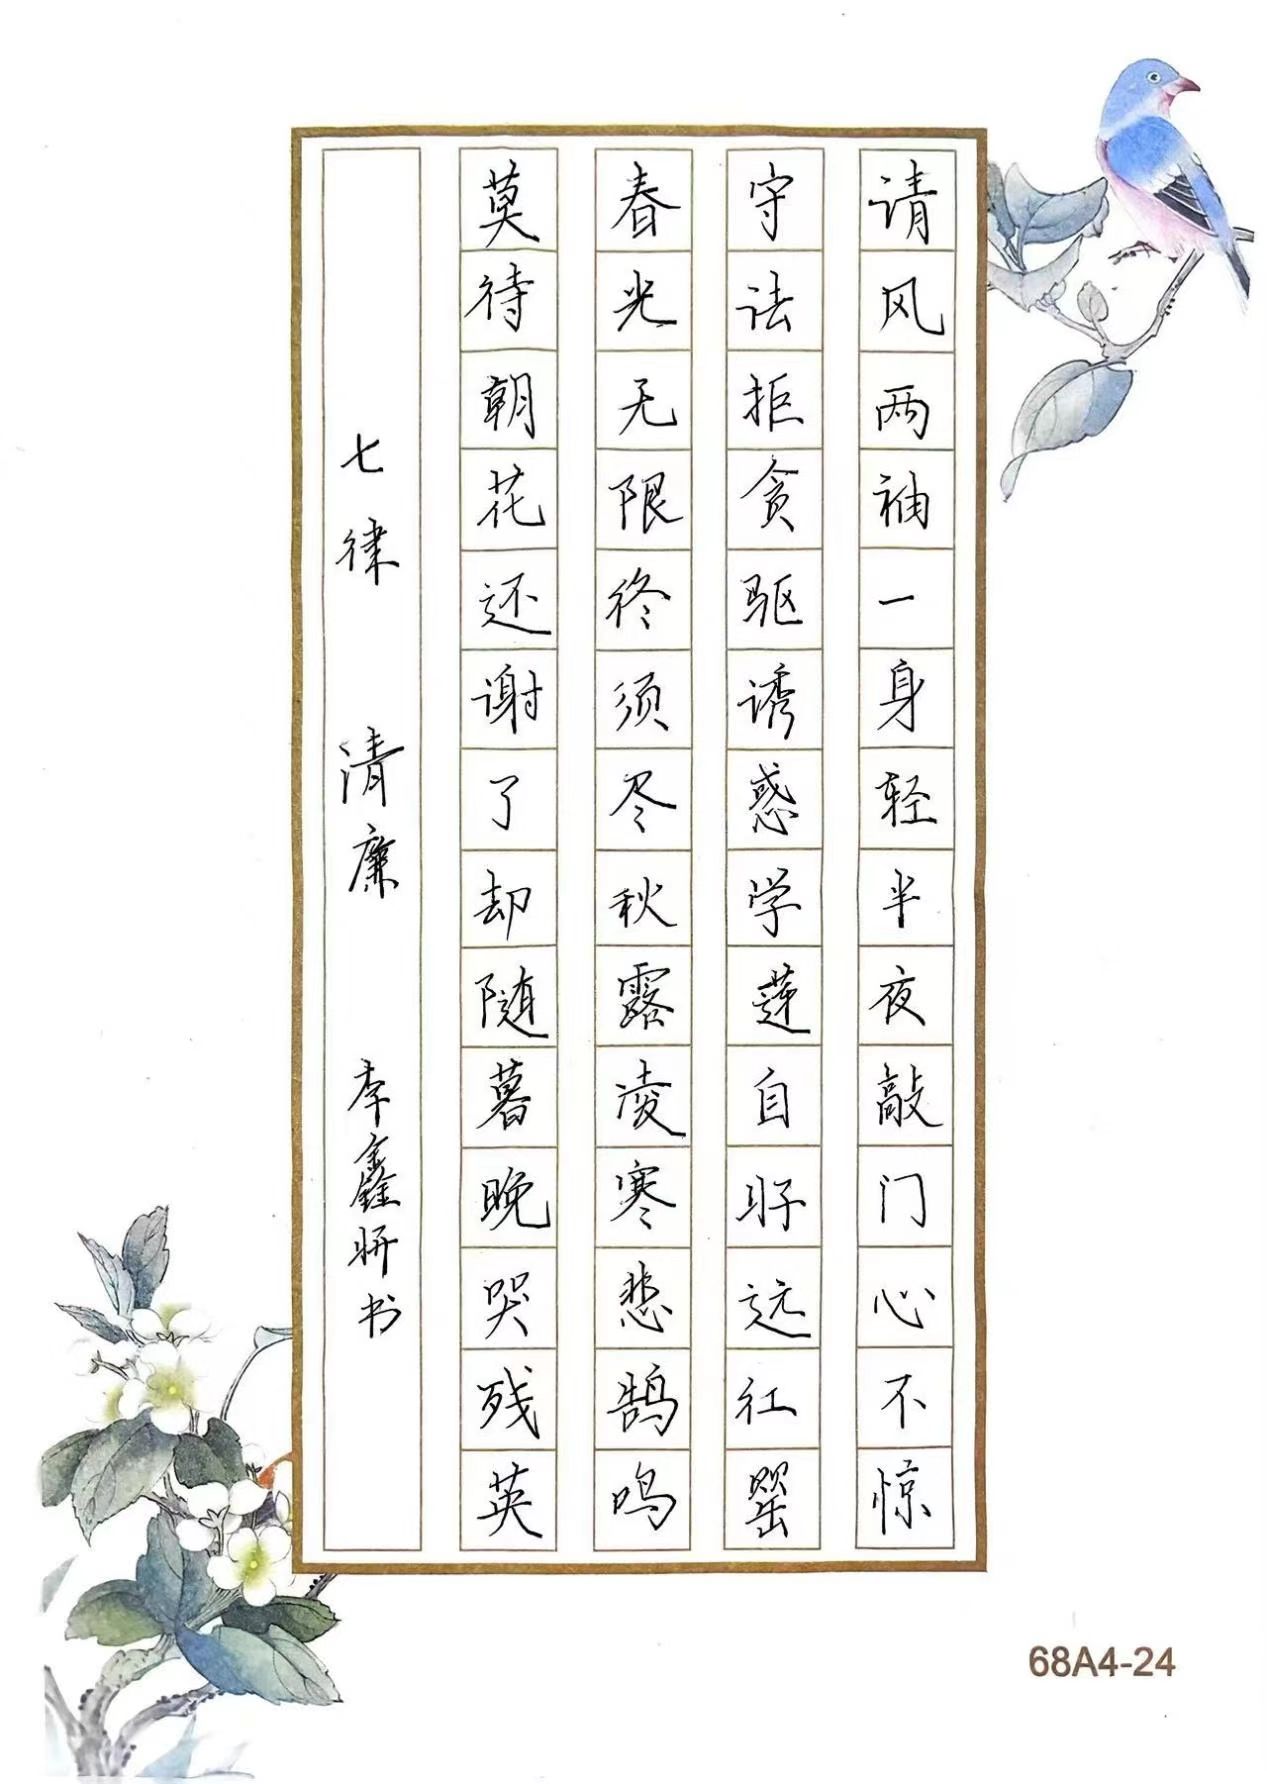 请风两袖一身轻半夜敲门心不惊
守法拒贪驱诱惑学莲自好远红罂
春光无限终须尽秋露凌寒悲鹄鸣
莫待朝花还谢了却随暮晚哭残英
七律 清廉 李鑫妍书
68A4-24